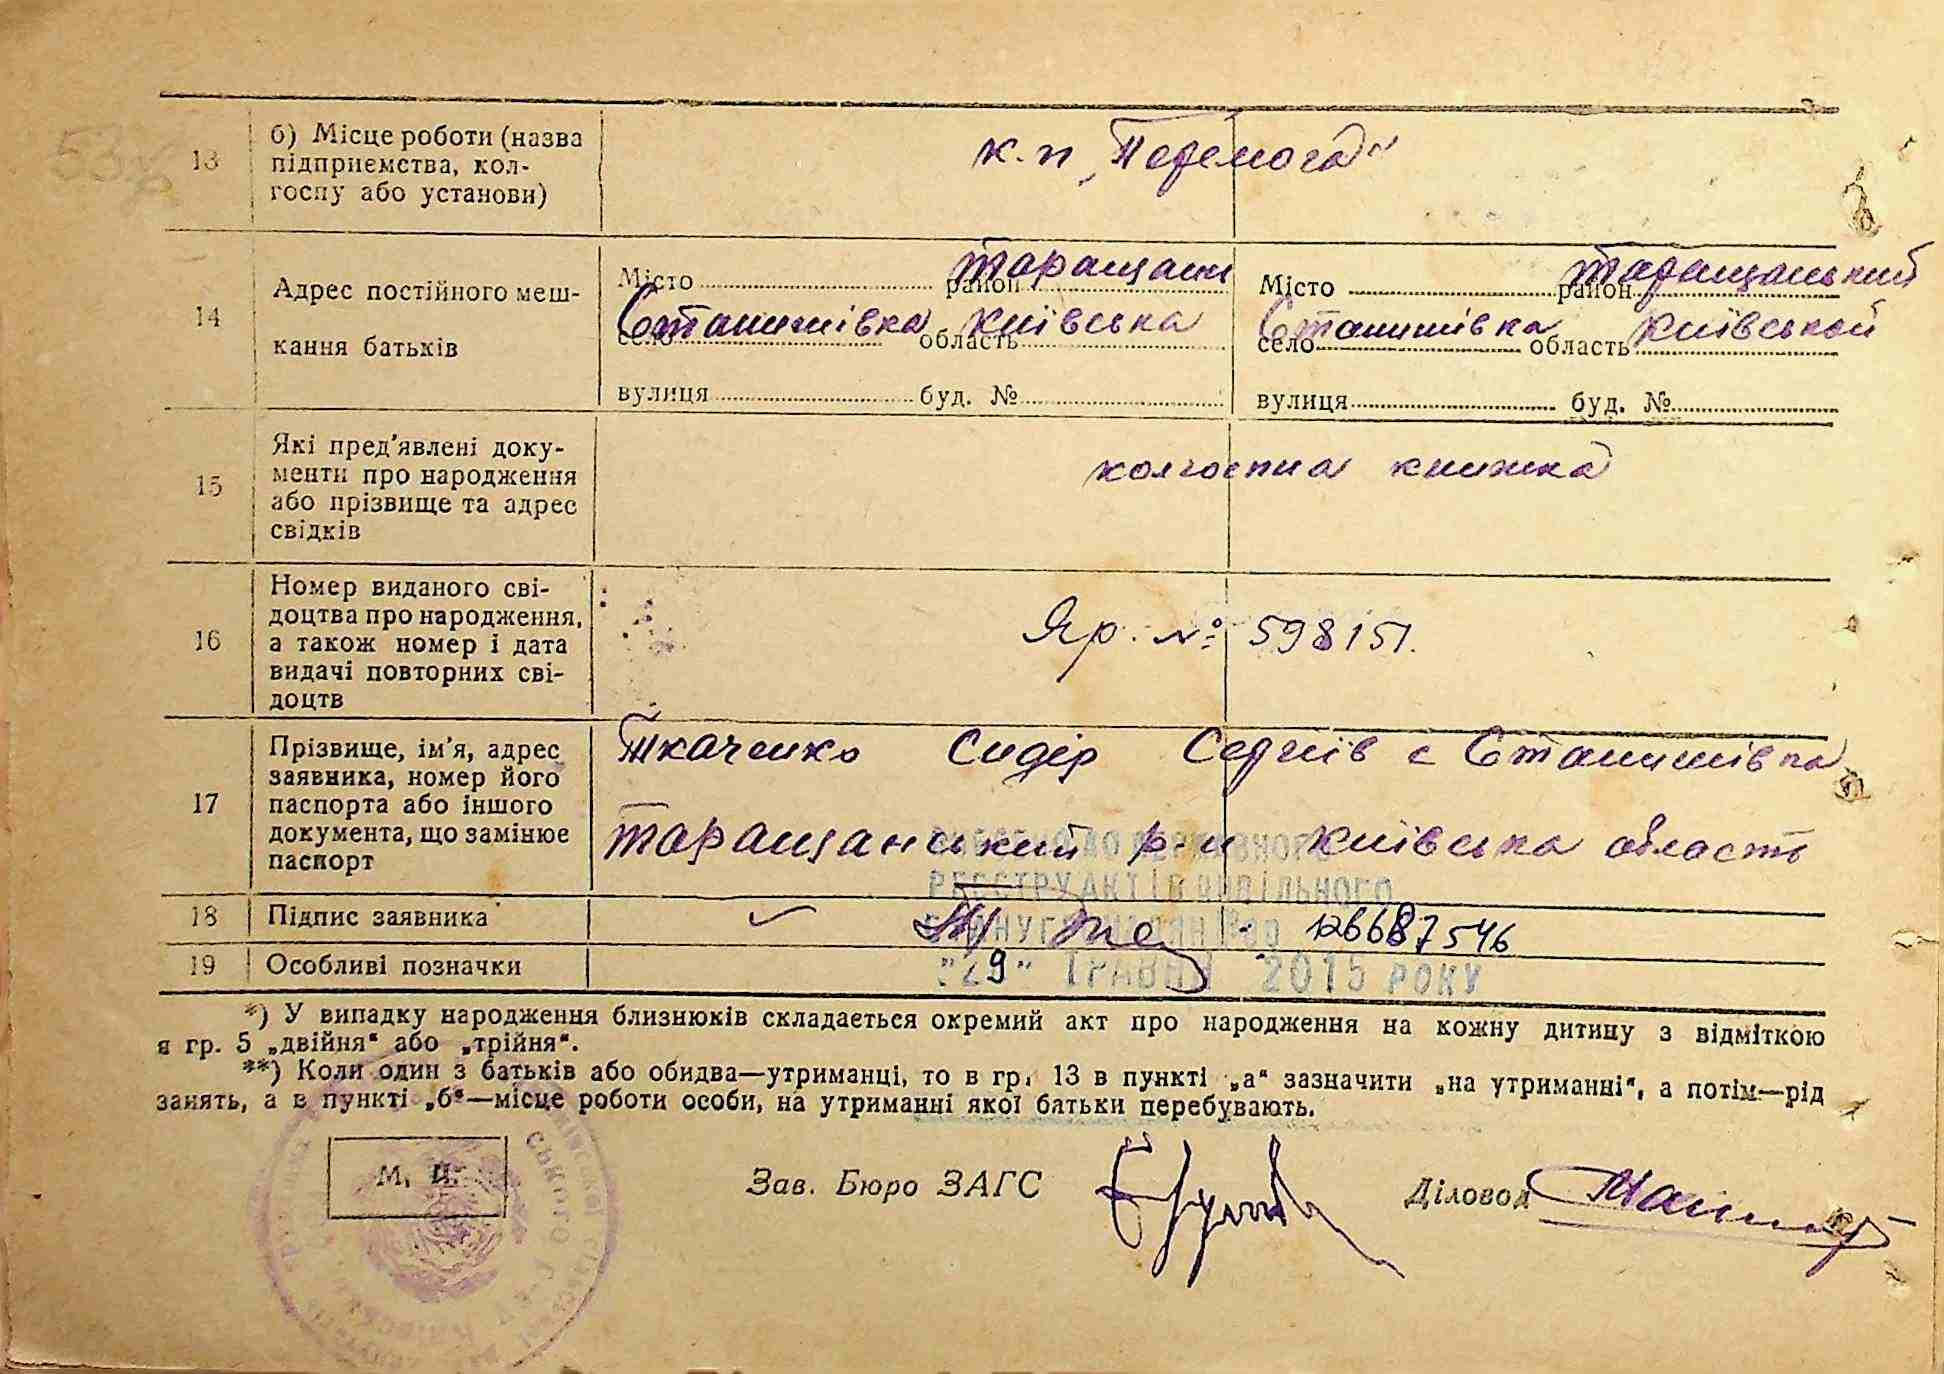 13 б) Місце роботи (назва
підприємства, кол-
госпу або установи)
к.п „Перемога"
14 Адрес постійного меш-
кання батьків
Місто район Таращан
село Станишівка область Київська
вулиця буд. №
Місто район Таращанський
село Станишівка область Київської
вулиця буд. №
15 Які пред'явлені доку-
менти про народження
або прізвище та адрес
свідків
колгоспна книжка
16 Номер виданого сві-
доцтва про народження,
а також номер і дата
видачі повторних сві-
доцтв
Яр. № 598151.
17 Прізвище, ім'я, адрес
заявника, номер його
паспорта або іншого
документа, що замінює
паспорт
Ткаченко Сидір Сергіїв с Станишівка
Таращанський р-н Київська область
ДО ДЕРЖАВНОГО
РЕЄСТРУ АКТІВ ЦИВІЛЬНОГО
18 Підпис заявника
126687546
19 Особливі позначки
"29" ТРАВНЯ 2015 РОКУ
*) У випадку народження близнюків складається окремий акт про народження на кожну дитину з відміткою
в гр. 5 „двійня“ або „трійня“.
**) Коли один з батьків або обидва—утриманці, то в гр. 13 в пункті „а“ зазначити „на утриманні“, а потім—рід
занять, а в пункті „б“—місце роботи особи, на утриманні якої батьки перебувають.
М. П.
Зав. Бюро ЗАГС
Діловод